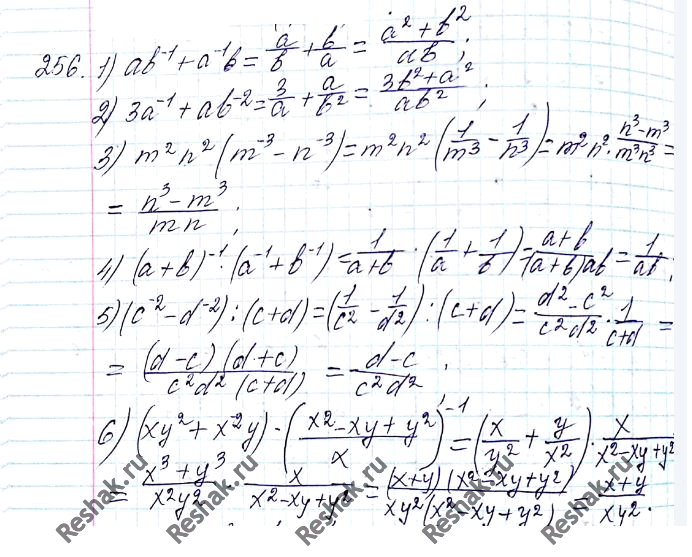 256. 1) ab⁻¹ + a⁻¹b = a/b + b/a = (a² + b²)/(ab);
2) 3a⁻¹ + ab⁻² = 3/a + a/b² = (3b² + a²)/(ab²);
3) m²n²(m⁻³ − n⁻³) = m²n²(1/m³ − 1/n³) = m²n² · (n³ − m³)/(m³n³) =
= (n³ − m³)/(mn);
4) (a + b)⁻¹ · (a⁻¹ + b⁻¹) = 1/(a + b) · (1/a + 1/b) = (a + b)/((a + b)ab) = 1/(ab);
5) (c⁻² − d⁻²) : (c + d) = (1/c² − 1/d²) : (c + d) = (d² − c²)/(c²d²) · 1/(c + d) =
= ((d − c)(d + c))/(c²d²(c + d)) = (d − c)/(c²d²);
6) (xy² + x⁻²y) · ((x² − xy + y²)/x)⁻¹ = (x/y² + y/x²) · x/(x² − xy + y²)
= (x³ + y³)/(x²y²) · x/(x² − xy + y²) = ((x + y)(x² − xy + y²))/(xy²(x² − xy + y²)) = (x + y)/(xy²).
Reshak.ru
Reshak.ru
Reshak.ru
Reshak.ru
Reshak.ru